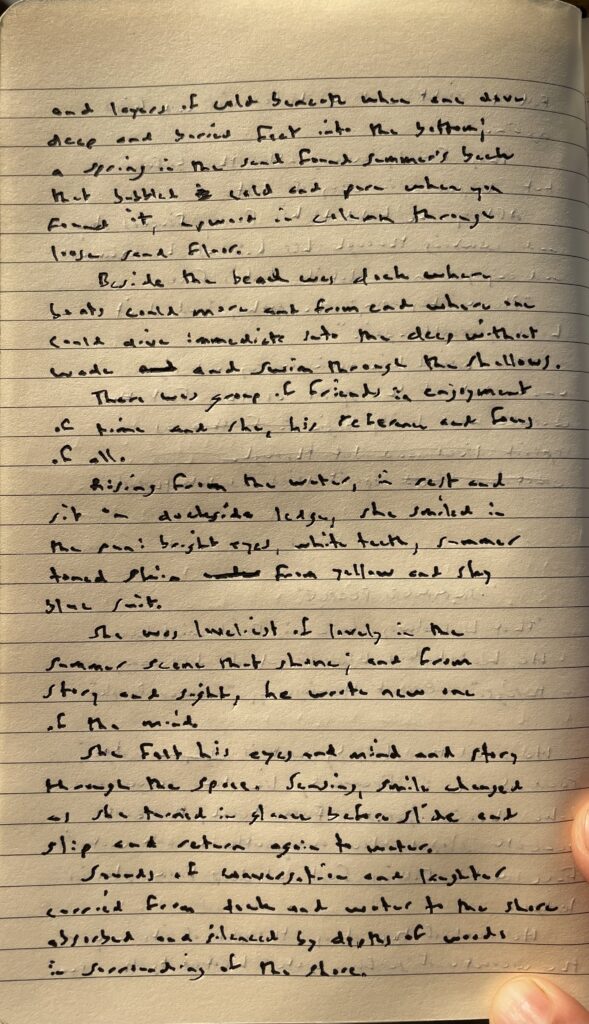 and layers of cold beneath when one dove
deep and buried feet into the bottom;
a spring in the sand found summer's back
that bubbled cold and pure when you
found it, upward in column through
loose sand floor.
Beside the beach was dock where
boats could moor and from end where one
could dive immediate into the deep without
wade and swim through the shallows.
There was group of friends in enjoyment
of time and she, his reference and focus
of all.
Rising from the water, in rest and
sit on dockside ledge, she smiled in
the sun: bright eyes, white teeth, summer
toned skin from yellow and sky
blue suit.
She was loveliest of lovely in the
summer scene that shone; and from
story and sight, he wrote new one
of the mind
She felt his eyes and mind and story
through the space. Sensing, smile changed
as she turned in glance before slide and
slip and return again to water.
Sounds of conversation and laughter
carried from dock and water to the shore
absorbed and silenced by depths of woods
in surrounding of the shore.